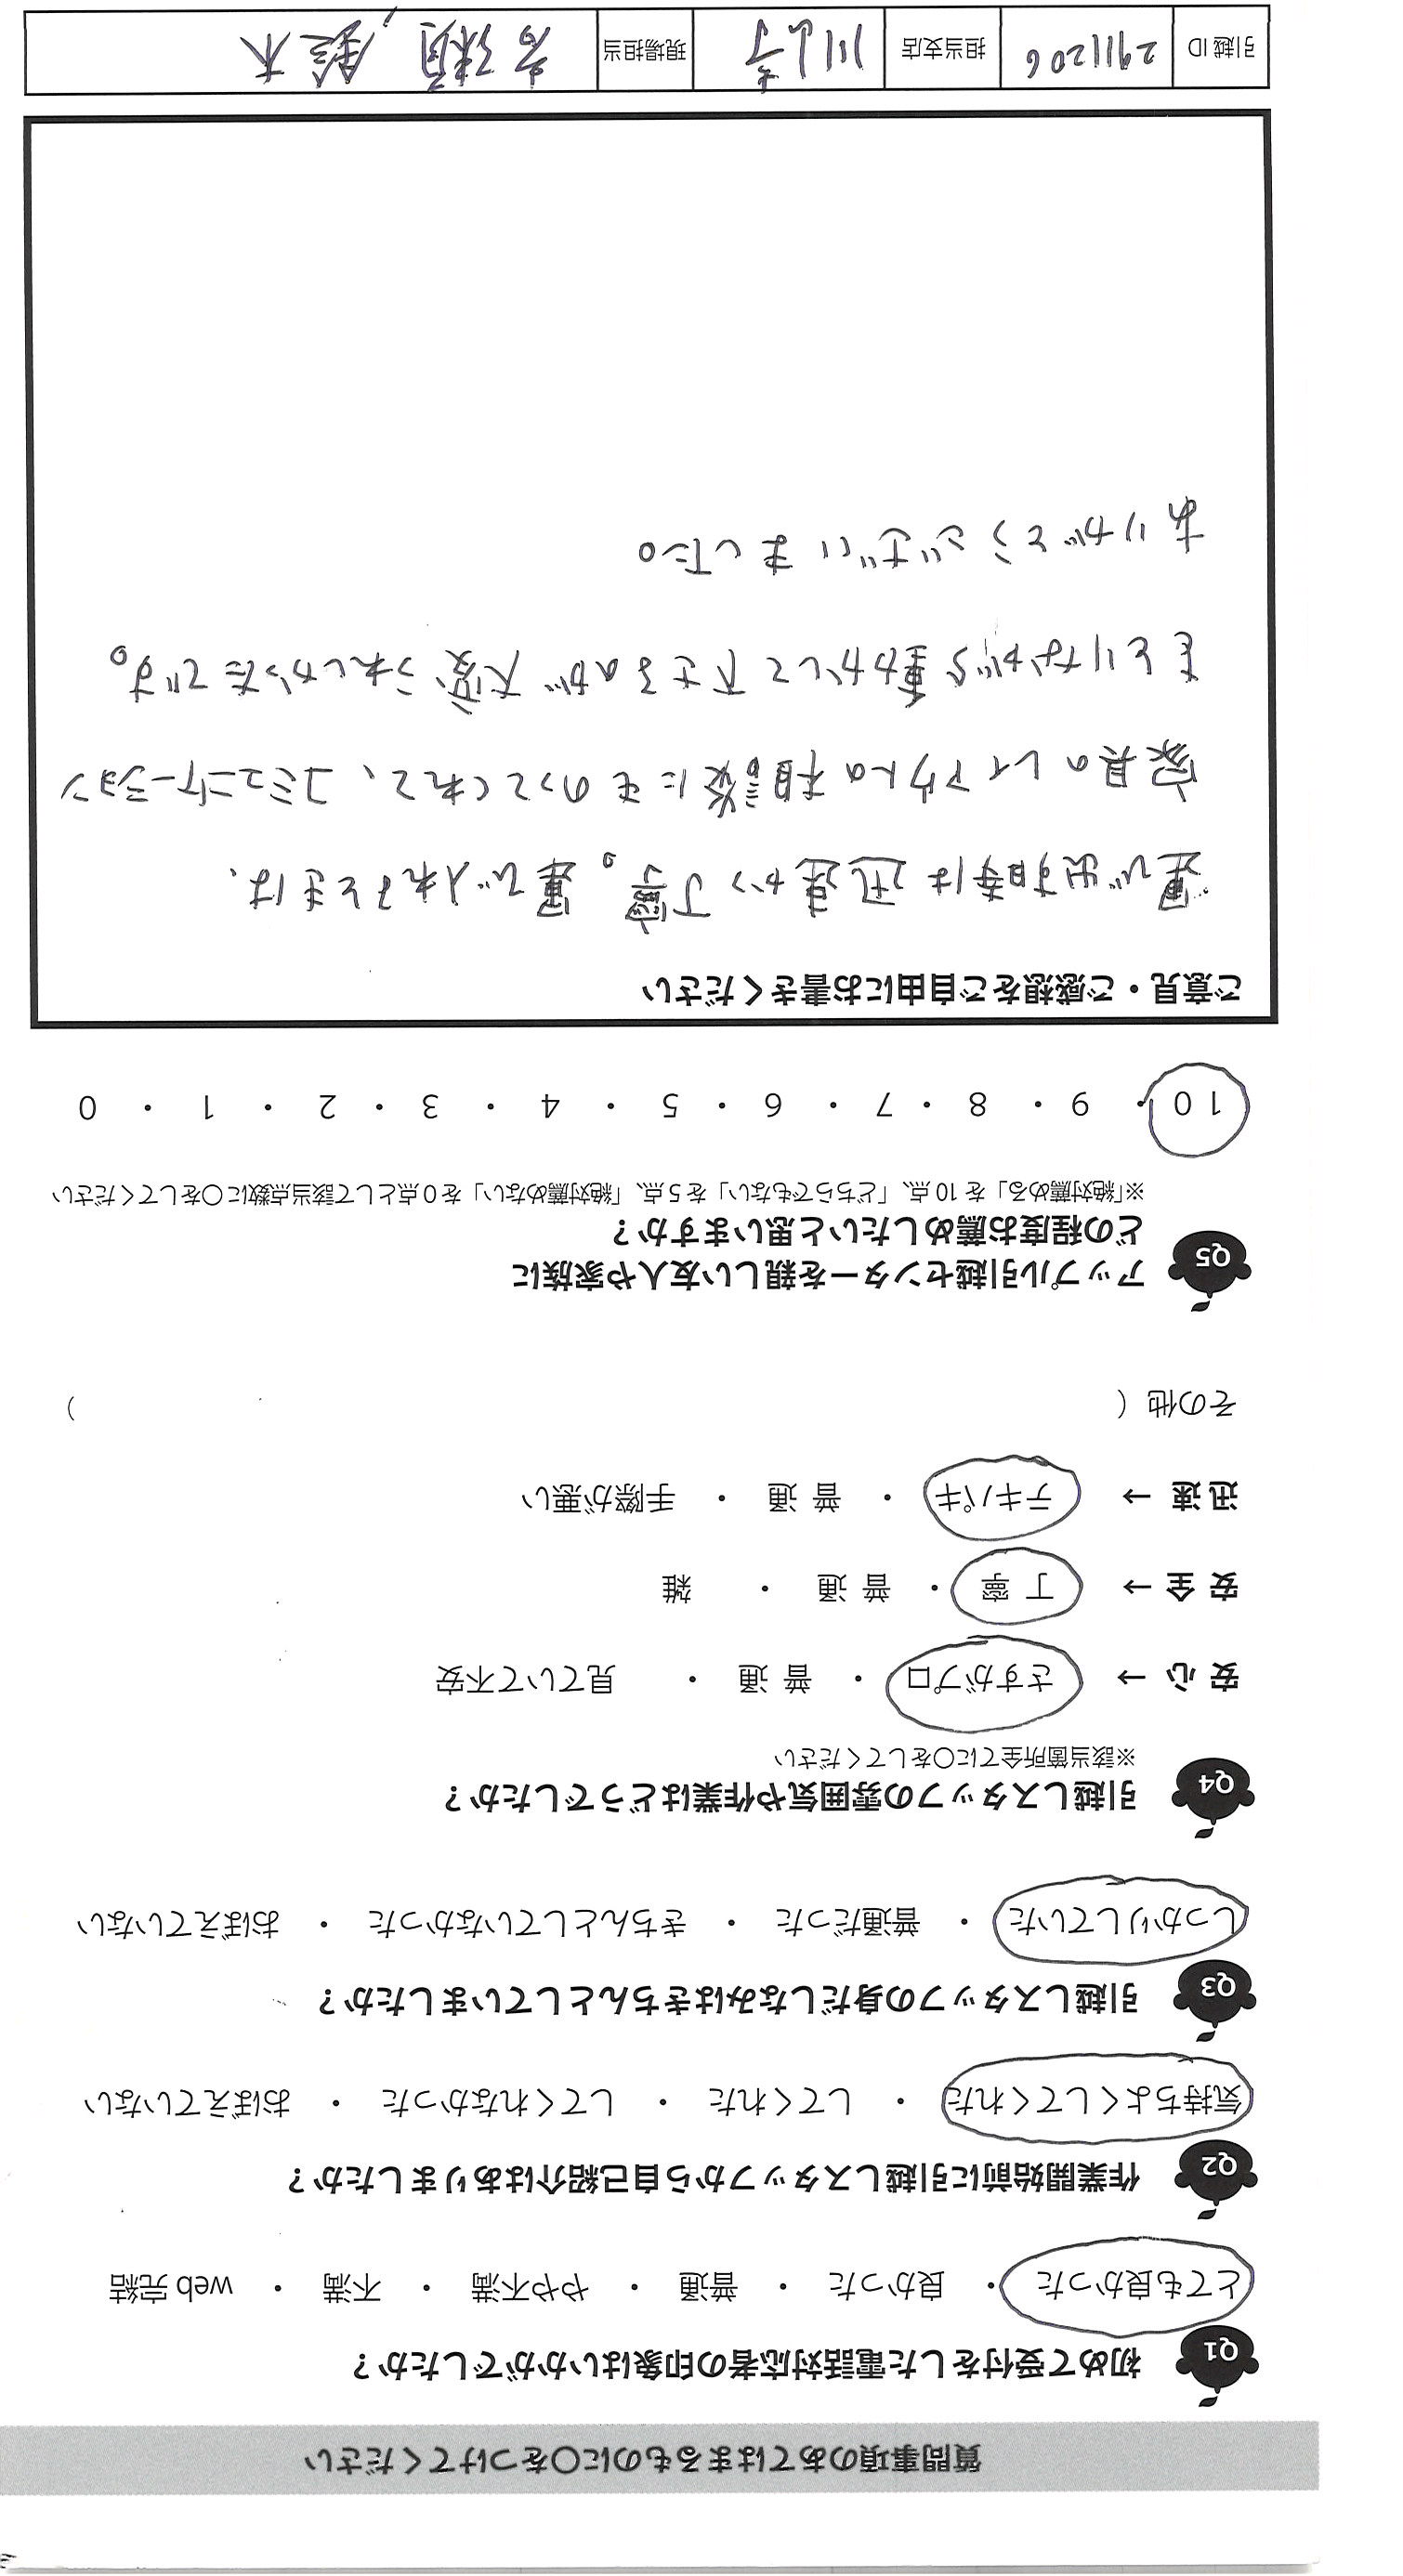 質問事項のあてはまるものに〇をつけてください
Q1 初めて受付をした電話対応者の印象はいかがでしたか？
とても良かった ・ 良かった ・ 普通 ・ やや不満 ・ 不満 ・ web 完結
Q2 作業開始前に引越しスタッフから自己紹介はありましたか？
気持ちよくしてくれた ・ してくれた ・ してくれなかった ・ おぼえていない
Q3 引越しスタッフの身だしなみはきちんとしていましたか？
しっかりしていた ・ 普通だった ・ きちんとしていなかった ・ おぼえていない
Q4 引越しスタッフの雰囲気や作業はどうでしたか？
※該当箇所全てに〇をしてください
安 心 → さすがプロ ・ 普 通 ・ 見ていて不安
安 全 → 丁 寧 ・ 普 通 ・ 雑
迅 速 → テキパキ ・ 普 通 ・ 手際が悪い
その他（ ）
Q5 アップル引越センターを親しい友人や家族に
どの程度お薦めしたいと思いますか？
※「絶対薦める」を 10 点、「どちらでもない」を 5 点、「絶対薦めない」を 0 点として該当点数に〇をしてください
10 ・ 9 ・ 8 ・ 7 ・ 6 ・ 5 ・ 4 ・ 3 ・ 2 ・ 1 ・ 0
ご意見・ご感想をご自由にお書きください
運び出す時は迅速かつ丁寧。運び入れるときは、
家具のレイアウトの相談にものってくれて、コミュニケーション
をとりながら動かして下さるのが大変うれしかったです。
ありがとうございました。
引越 ID 2911206 担当支店 現場担当 鈴木